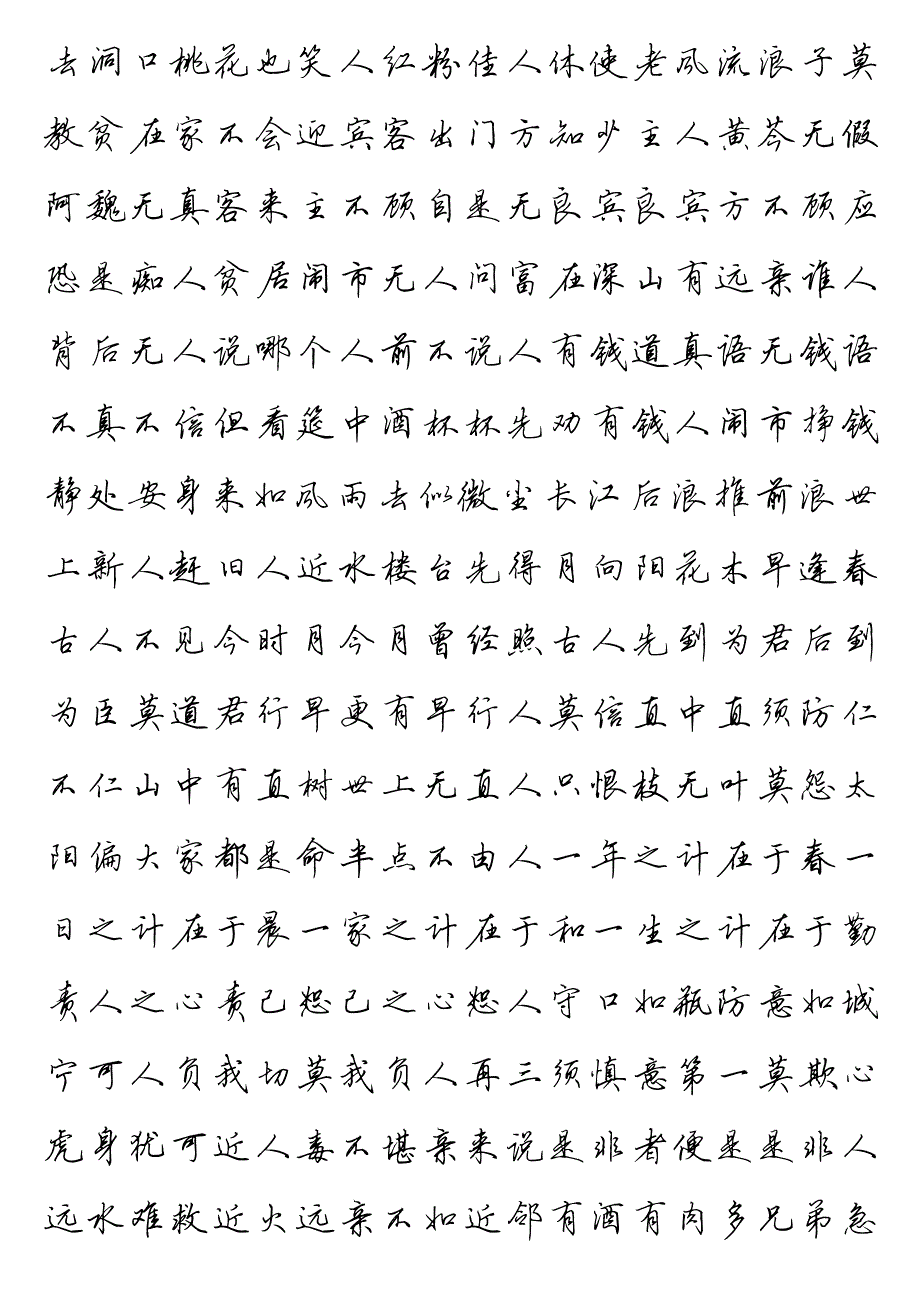 去洞口桃花也笑人红粉佳人休使老风流浪子莫
教贫在家不会迎宾客出门方知少主人黄芩无假
阿魏无真客来主不顾自是无良宾良宾方不顾应
恐是痴人贫居闹市无人问富在深山有远亲谁人
背后无人说哪个人前不说人有钱道真语无钱语
不真不信但看筵中酒杯杯先劝有钱人闹市挣钱
静处安身来如风雨去似微尘长江后浪推前浪世
上新人赶旧人近水楼台先得月向阳花木早逢春
古人不见今时月今月曾经照古人先到为君后到
为臣莫道君行早更有早行人莫信直中直须防仁
不仁山中有直树世上无直人只恨枝无叶莫怨太
阳偏大家都是命半点不由人一年之计在于春一
日之计在于晨一家之计在于和一生之计在于勤
责人之心责己恕己之心恕人守口如瓶防意如城
宁可人负我切莫我负人再三须慎意第一莫欺心
虎身犹可近人毒不堪亲来说是非者便是是非人
远水难救近火远亲不如近邻有酒有肉多兄弟急